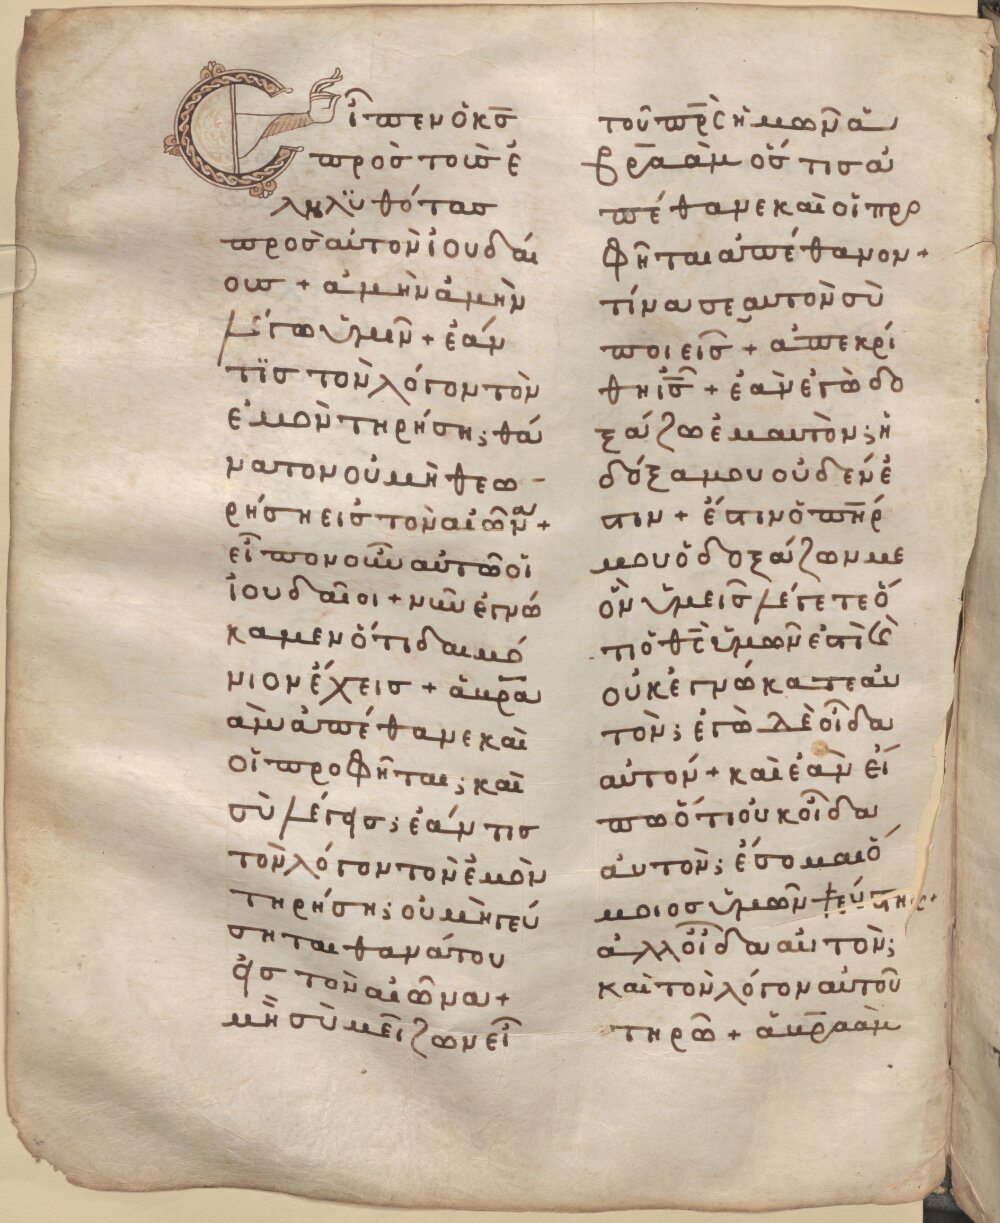 Εἶπεν ὁ κ̅σ̅
πρὸσ τοὺσ ἐ
ληλϋθότασ
πρὸσ αὐτὸν ἰουδαί
ουσ + ἀμὴν ἀμὴν
λέγω ὑμῖν + ἐάν
τϊσ τὸν λόγον τὸν
ἐμὸν τηρήσῃ; θά
νατον οὐ μὴ θεω
ρήσῃ εἰσ τὸν αἰῶνα +
εἶπον οὖν αὐτῶ οἱ
ἰουδαῖοι + νῦν ἐγνώ
καμεν ὅτι δαιμό
νιον ἔχεισ + ἀβραὰμ
ἀπέθανε καὶ
οἱ προφῆται; καὶ
σὺ λέγεισ; ἐάν τισ
τὸν λόγον τὸν ἐμὸν
τηρήσῃ; οὐ μὴ γεύ
σηται θανάτου
εἰσ τὸν αἰῶνα +
μὴ σὺ μείζων εἶ
τοῦ π̅ρ̅σ̅ ἡμῶν ἀ
βραὰμ ὅστισ ἀ
πέθανε καὶ οἱ προ
φῆται ἀπέθανον +
τίνα σεαυτὸν σὺ
ποιεῖσ + ἀπεκρί
θη ἰ̅σ̅ + ἐὰν ἐγὼ δο
ξάζω ἐμαυτὸν; ἡ
δόξα μου οὐδέν ἐ
στιν + ἔστιν ὁ π̅η̅ρ̅
μου ὁ δοξάζων με
ὃν ὑμεῖσ λέγετε ὅ
τι ὁ θ̅σ̅ ὑμῶν ἐστὶ καὶ
οὐκ ἐγνώκατε αὐ
τὸν; ἐγὼ δὲ οἶδα
αὐτόν + καὶ ἐὰν εἴ
πω ὅτι οὐκ οἶδα
αὐτὸν; ἔσομαι ὅ
μοιοσ ὑμῶν ψεύστησ
ἀλλ οἶδα αὐτὸν;
καὶ τὸν λόγον αὐτοῦ
τηρῶ + ἀβραὰμ